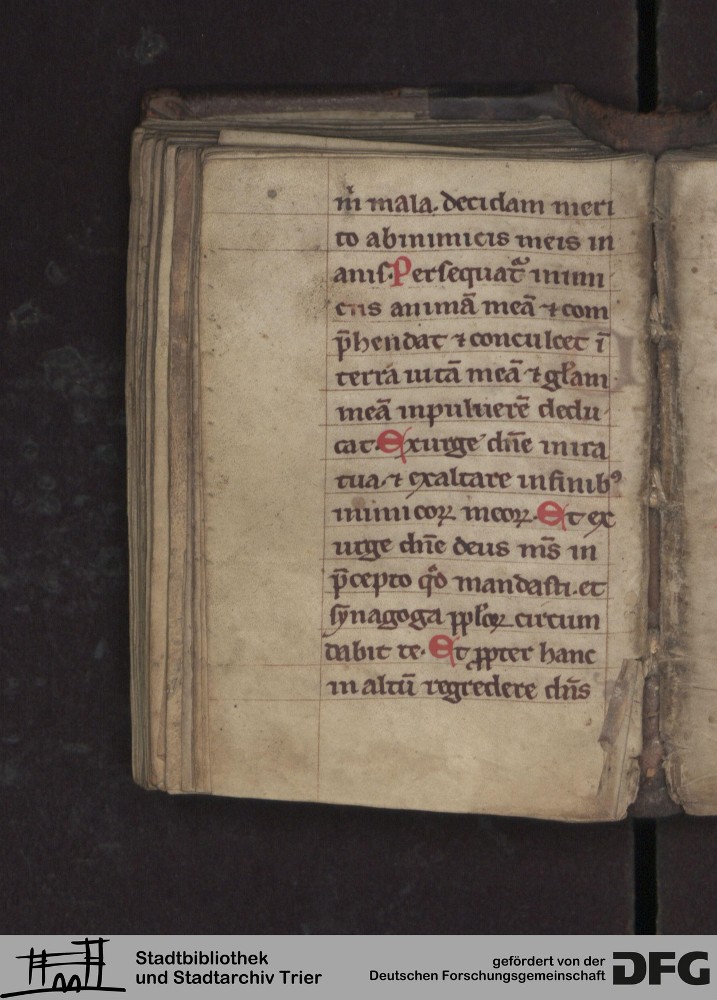 m̅ mala. decidam meri
to ab inimicis meis in
anis. Persequat᷑ inimi
cus animā meā ⁊ com
p̄hendat ⁊ conculcet ī
terrā uitā meā ⁊ gl̄am
meā in puluerē dedu
cat. Exurge dn̄e in ira
tua. ⁊ exaltare in finibꝰ
inimicoꝝ meoꝝ. Et ex
urge dn̄e deus m̄s in
p̄cepto qđo mandasti. et
synagoga ppl̄oꝝ circum
dabit te. Et ꝓpter hanc
in altū regredere dn̄s
Stadtbibliothek
und Stadtarchiv Trier
gefördert von der
Deutschen Forschungsgemeinschaft
DFG